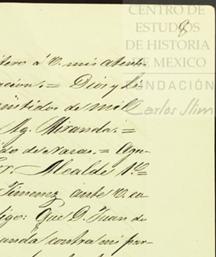 CENTRO DE
ESTUDIOS
DE HISTORIA
DE MEXICO
FUNDACIÓN
Carlos Slim
8
tero á V. mis atent.
acion.= Dios y Li
eintidos de mil
Mg. Miranda.=
do de varas.=
or. Alcalde 1º.=
Jimenez ante V. en
digo: Que D. Juan de
anda contra mi par